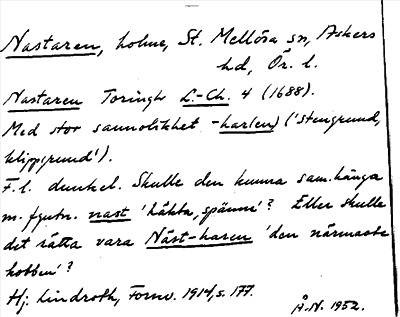 Nastaren, holme, St. Mellösa sn, Askers
hd, Ör. l.
Nastaren Toringh L.-Ch. 4 (1688).
Med stor sannolikhet -har(en) ('stengrund,
klippgrund').
F.l. dunkel. Skulle den kunna sam.hänga
m. fgutn. nast 'häkta, spänne'? Eller skulle
det rätta vara Näst-haren 'den närmaste
kobben'?
Hj. Lindroth, Fornv. 1914, s. 177.
Å.N. 1952.